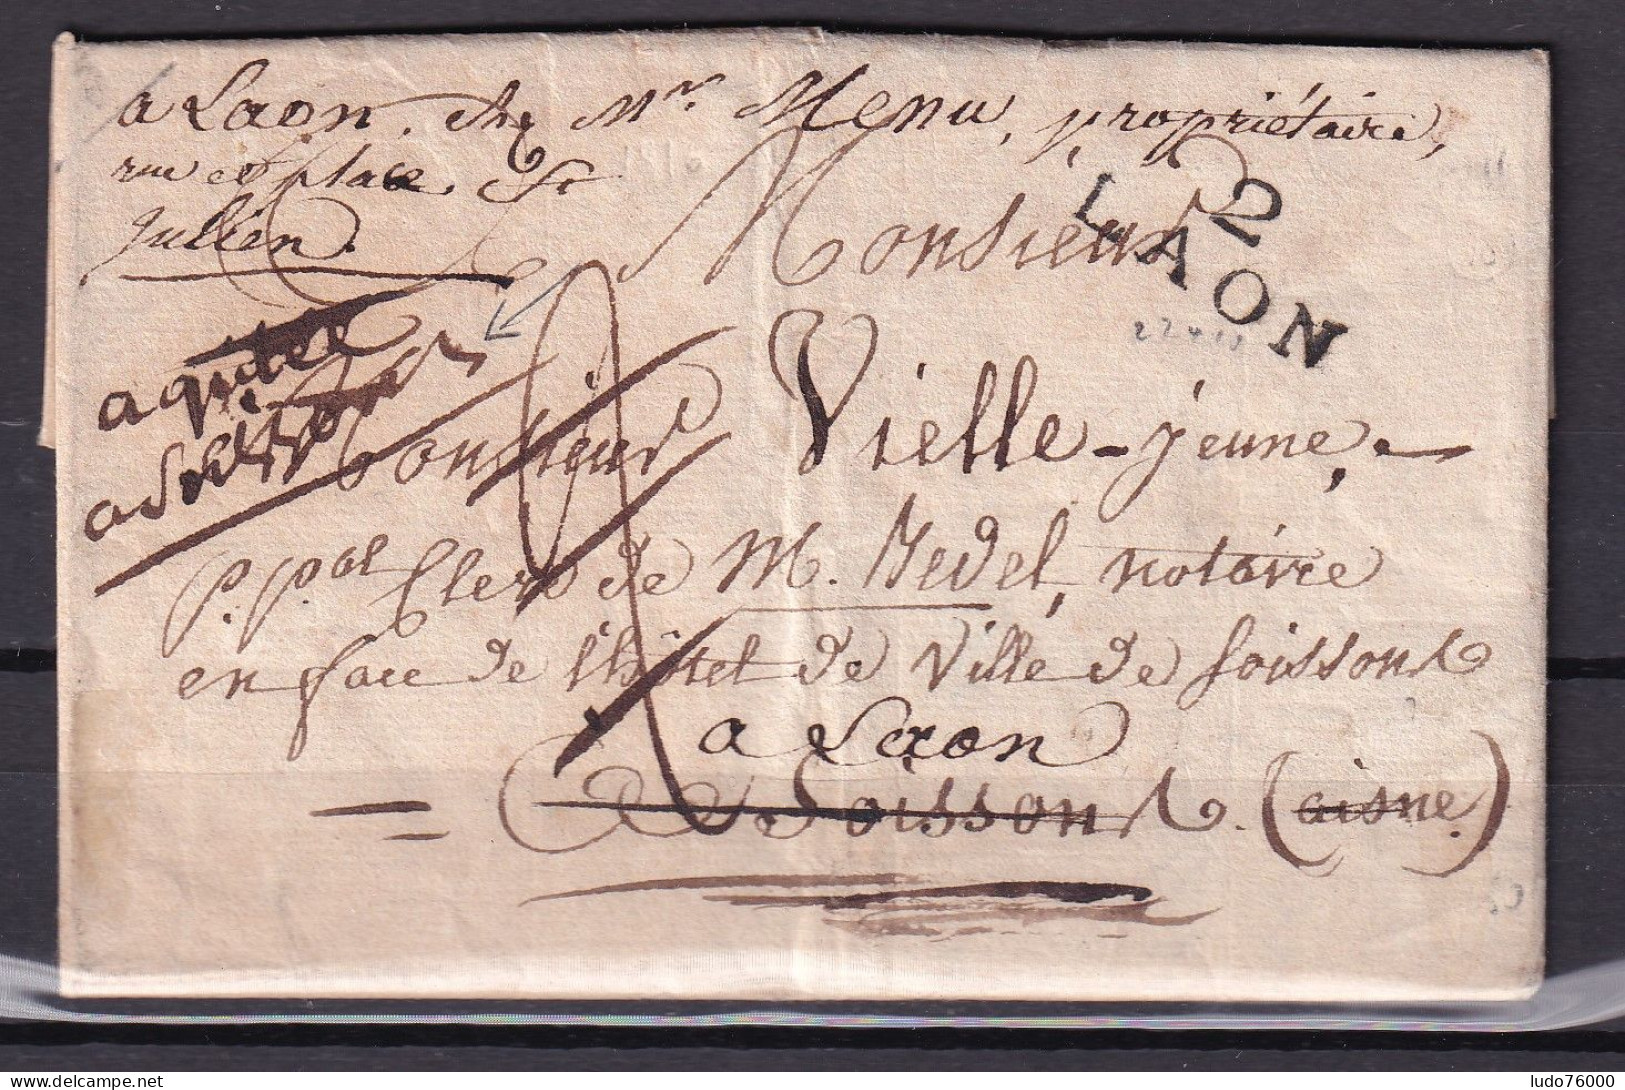 a Laon, chez Mr. Menu, propriétaire,
rue et place St
Julien.
2
LAON
Monsieur
aquitée
a Soissons
Monsieur
Vielle-jeune,
p. pal Clerc de M. Jedel, notaire
en face de l'hôtel de Ville de Soissons
a Laon
Soissons. (aisne.)
ludo76000